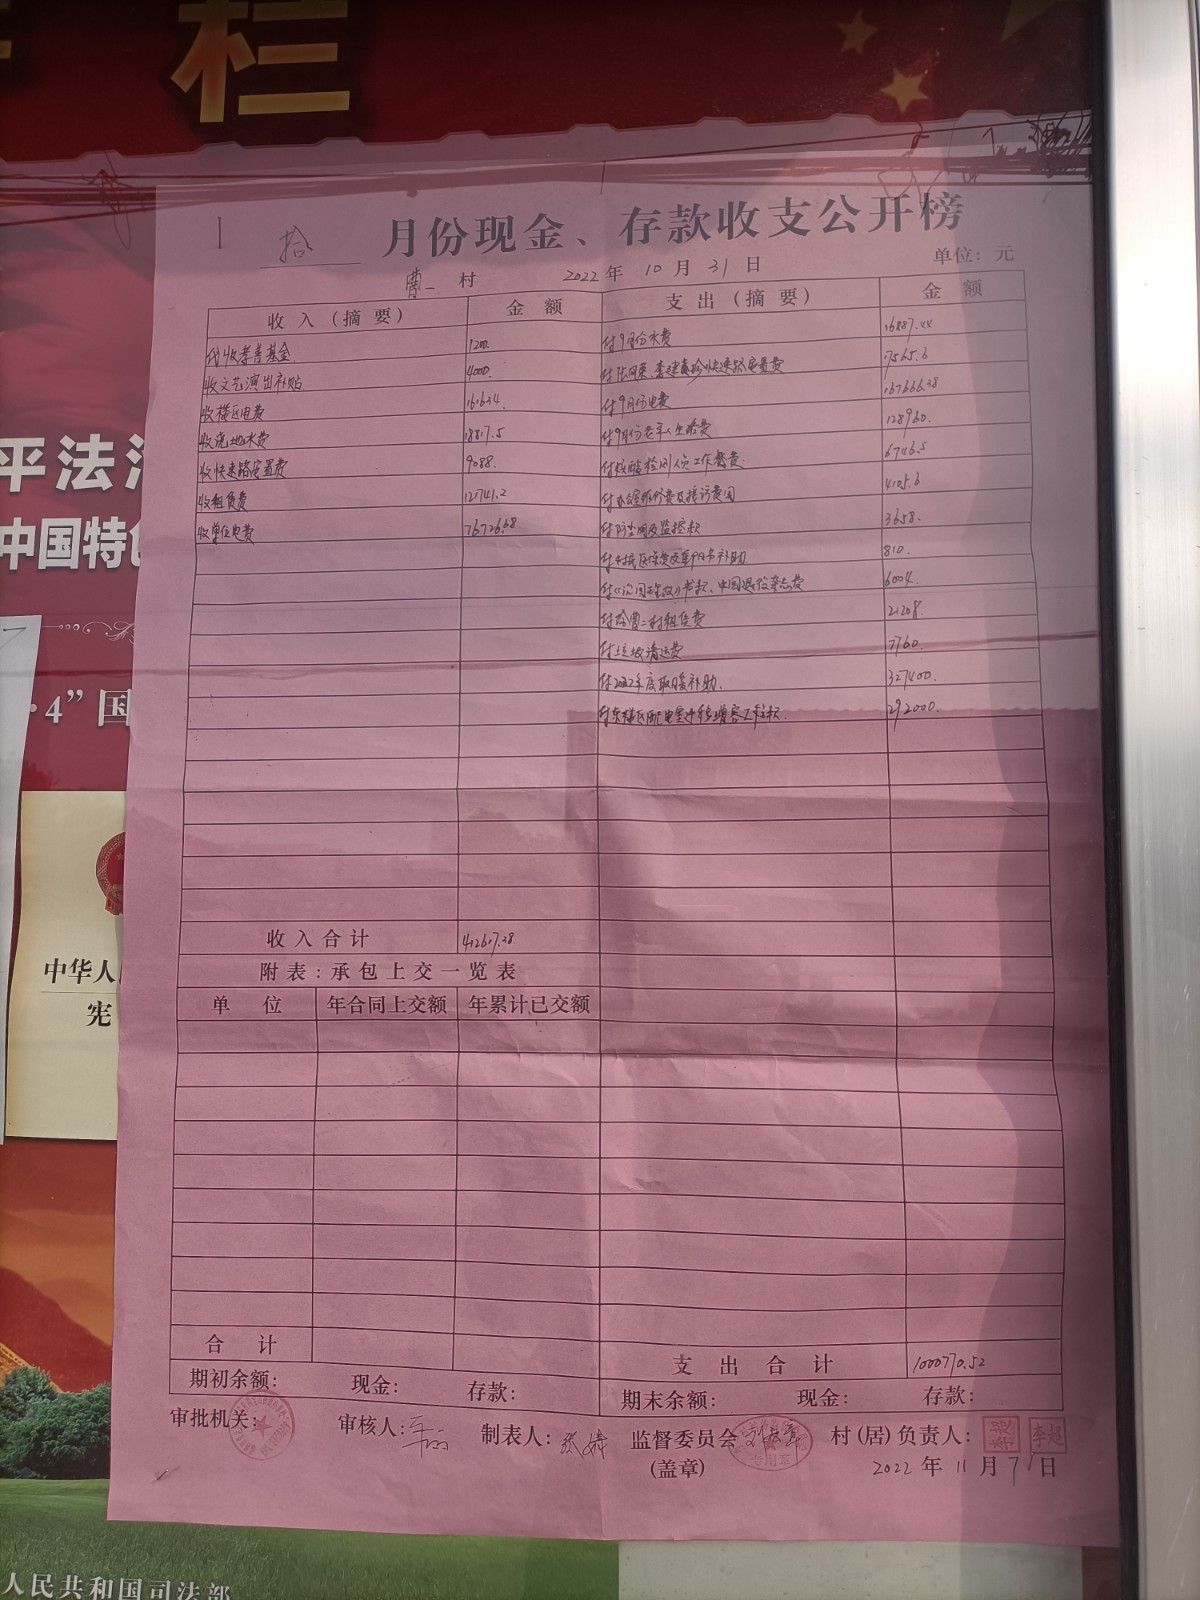 栏
拾 月份现金、存款收支公开榜
曹一 村 2022 年 10 月 31 日 单位：元
收 入（摘 要） 金 额 支 出（摘 要） 金 额
代收孝善基金 1200. 付9月份水费 16887.44
收文艺演出补贴 4000. 快速路安置费 7565.6
收楼区电费 付9月份电费 167666.38
收浇地水费 18817.5 付9月份老年人生活费 128960.
收快速路安置费 9088. 付核酸检测人员工作餐费 6746.5
收租赁费 12741.2 付办公室维修费及接访费用 4105.6
收单位电费 付防尘网及监控款 3658.
补助 810.
书款、中国退役杂志费 6004.
付给曹二村租赁费 21208.
付垃圾清运费 7760.
付2022年度取暖补助. 327400.
付东楼区配电室 增容工程款. 292000.
收 入 合 计 412607.28
附 表：承 包 上 交 一 览 表
单 位 年合同上交额 年累计已交额
合 计
支 出 合 计 1000770.52
期初余额： 现金： 存款： 期末余额： 现金： 存款：
审批机关： 审核人： 制表人： 监督委员会 村（居）负责人： 李超
(盖章) 专用章
2022 年 11 月 7 日
平法治
中国特色
·4”国
中华人民
宪
人民共和国司法部